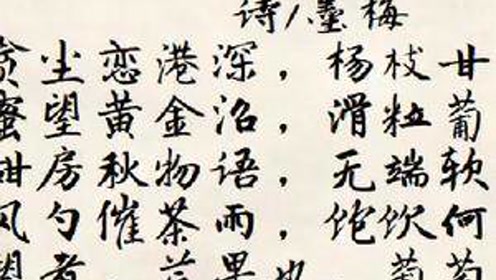 诗/墨梅
贪尘恋港深，杨枝甘
蜜望黄金沿，滑粒葡
甜房秋物语，无端软
风勺催茶雨，饱饮何